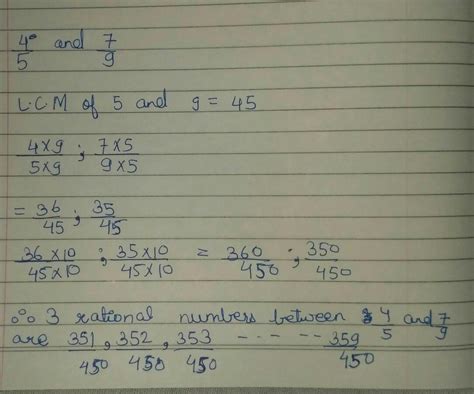 4/5 and 7/9
L.C.M of 5 and 9 = 45
4×9/5×9 ; 7×5/9×5
= 36/45 ; 35/45
36×10/45×10 ; 35×10/45×10 = 360/450 ; 350/450
∴ 3 rational numbers between 4/5 and 7/9
are 351/450, 352/450, 353/450 - - - - - - 359/450